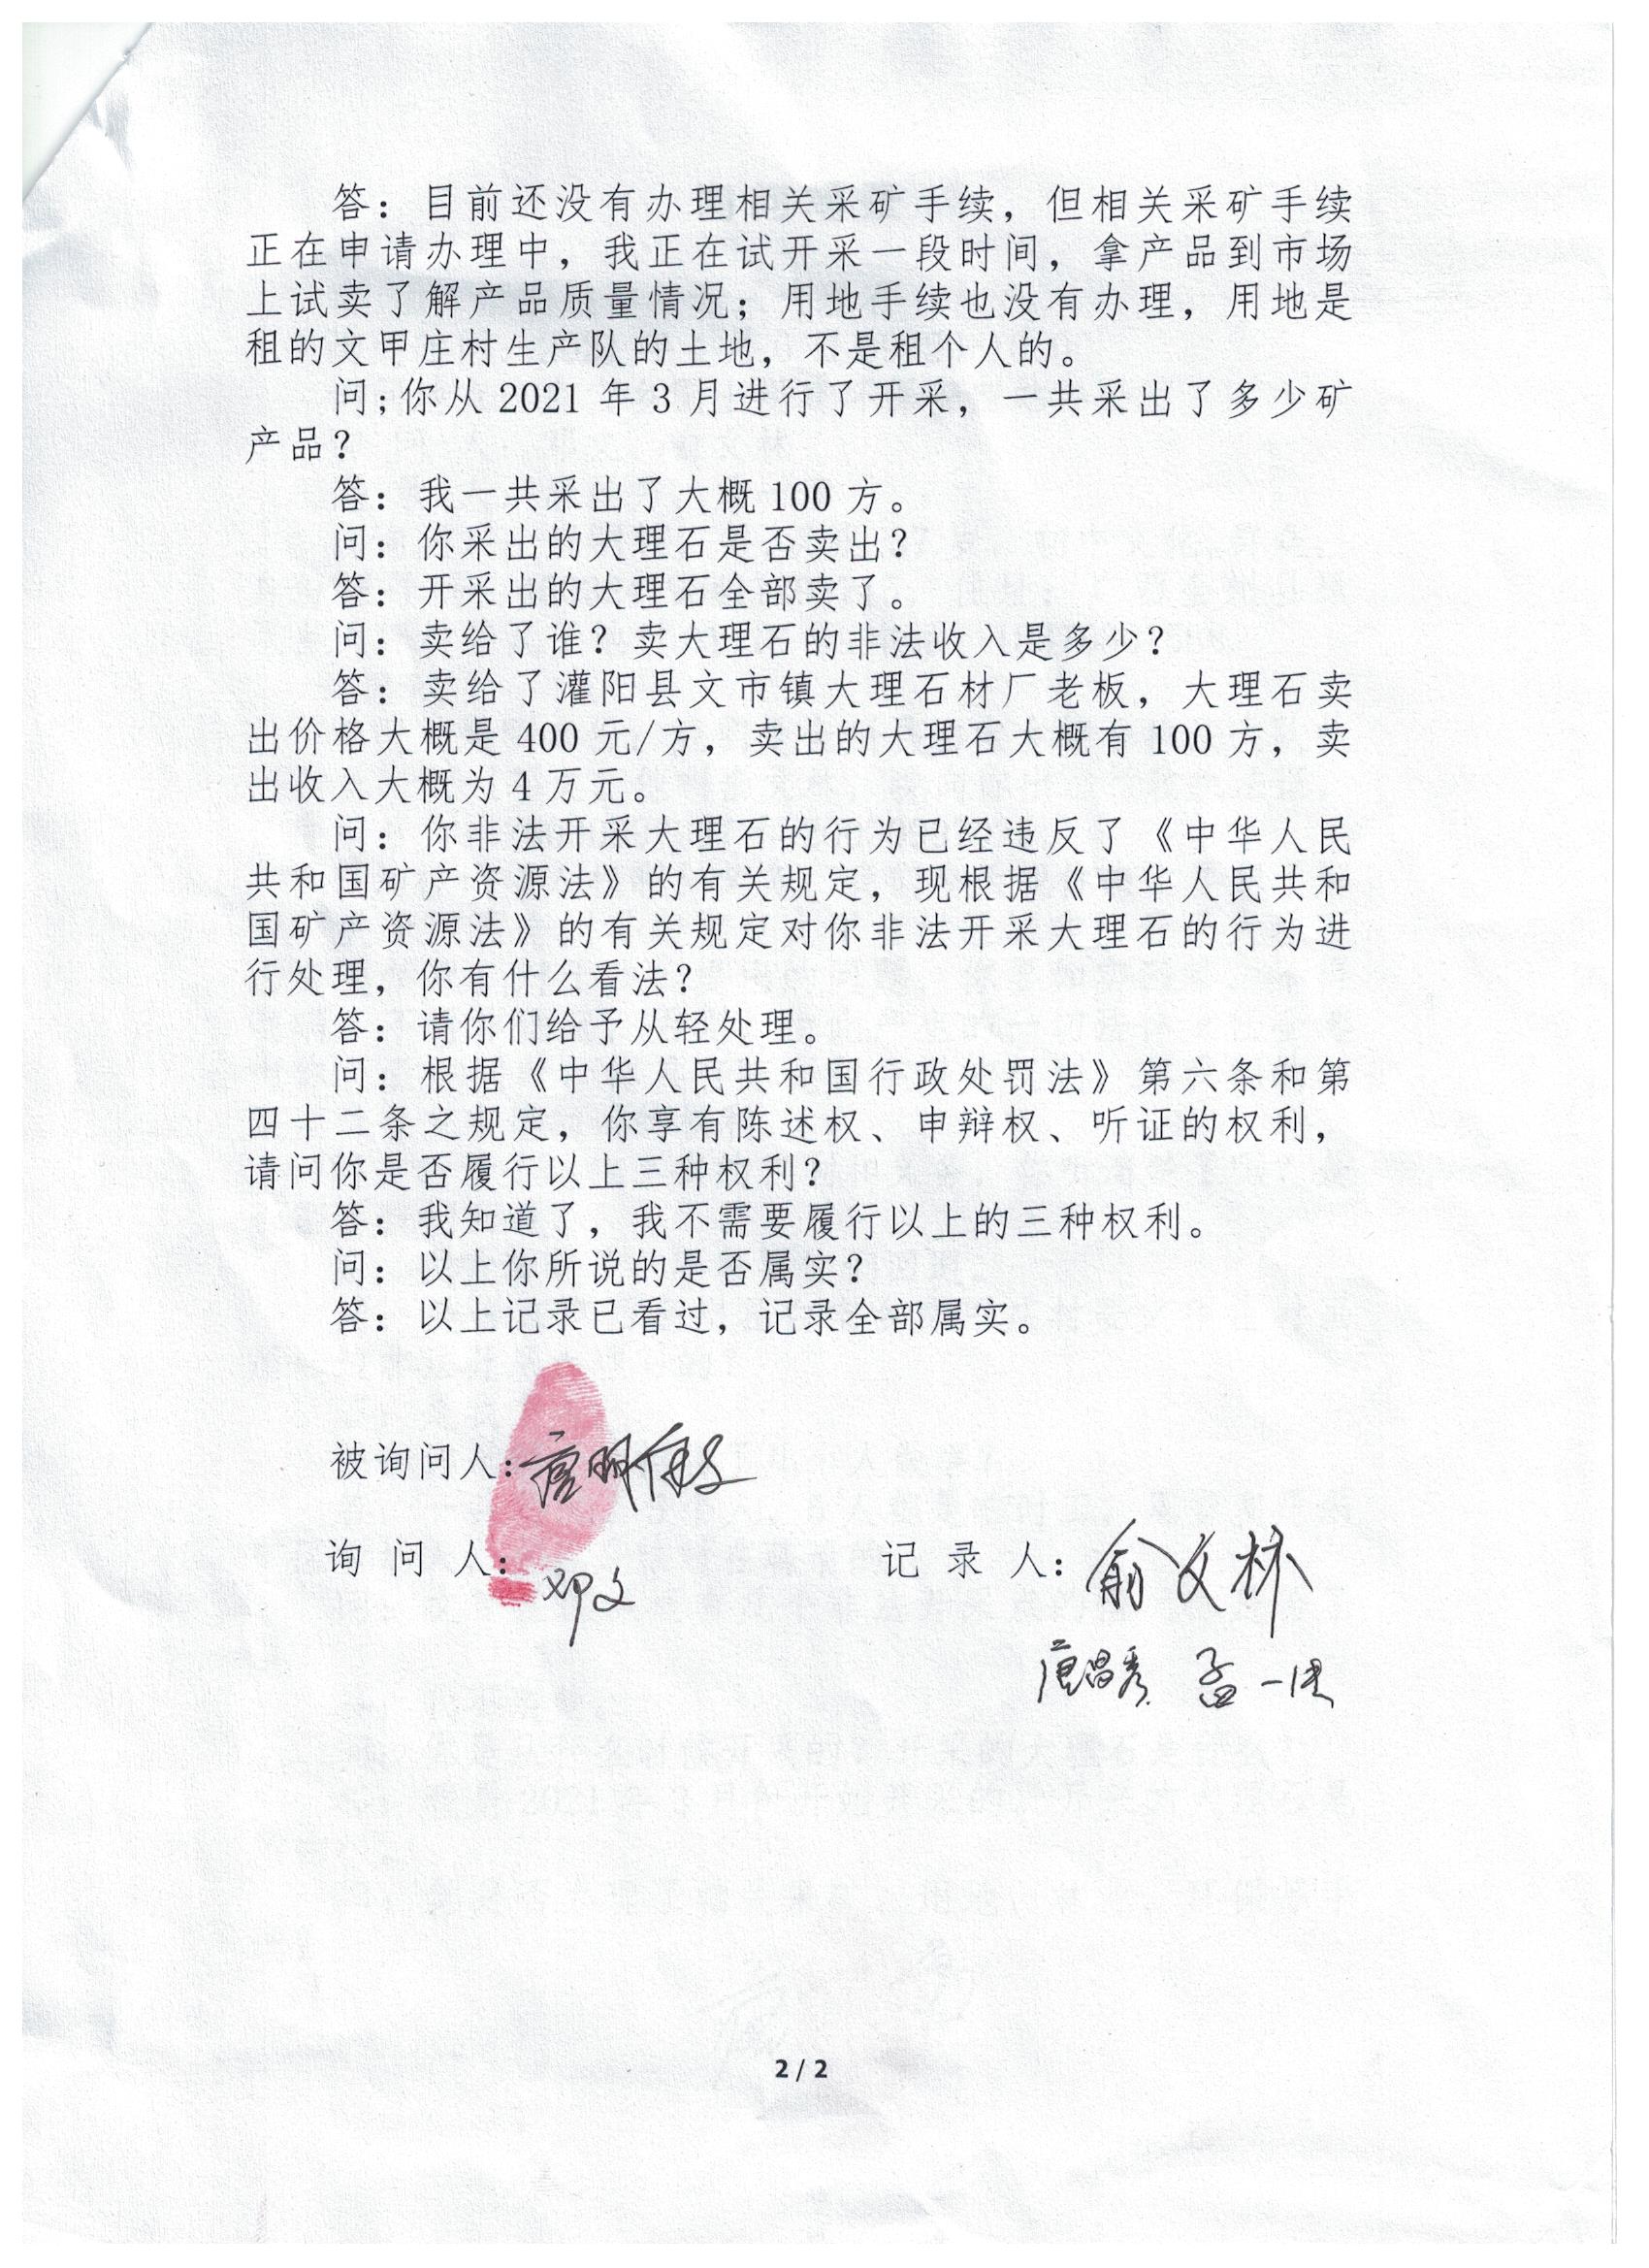 答：目前还没有办理相关采矿手续，但相关采矿手续
正在申请办理中，我正在试开采一段时间，拿产品到市场
上试卖了解产品质量情况；用地手续也没有办理，用地是
租的文甲庄村生产队的土地，不是租个人的。
问;你从 2021 年 3 月进行了开采，一共采出了多少矿
产品？
答：我一共采出了大概 100 方。
问：你采出的大理石是否卖出？
答：开采出的大理石全部卖了。
问：卖给了谁？卖大理石的非法收入是多少？
答：卖给了灌阳县文市镇大理石材厂老板，大理石卖
出价格大概是 400 元/方，卖出的大理石大概有 100 方，卖
出收入大概为 4 万元。
问：你非法开采大理石的行为已经违反了《中华人民
共和国矿产资源法》的有关规定，现根据《中华人民共和
国矿产资源法》的有关规定对你非法开采大理石的行为进
行处理，你有什么看法？
答：请你们给予从轻处理。
问：根据《中华人民共和国行政处罚法》第六条和第
四十二条之规定，你享有陈述权、申辩权、听证的权利，
请问你是否履行以上三种权利？
答：我知道了，我不需要履行以上的三种权利。
问：以上你所说的是否属实？
答：以上记录已看过，记录全部属实。
被询问人：唐明
询 问 人：邓文
记 录 人：俞文林
唐昌秀 孟一
2 / 2